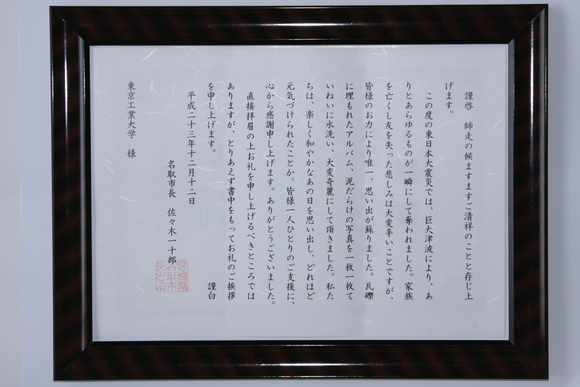 謹啓　師走の候ますますご清祥のことと存じ上
げます。
この度の東日本大震災では、巨大津波により、あ
りとあらゆるものが一瞬にして奪われました。家族
を亡くし友を失った悲しみは大変辛いことですが、
皆様のお力により唯一、思い出が蘇りました。瓦礫
に埋もれたアルバム、泥だらけの写真を一枚一枚て
いねいに水洗い、大変奇麗にして頂きました。私た
ちは、楽しく和やかなあの日を思い出し、どれほど
元気づけられたことか。皆様一人ひとりのご支援に、
心から感謝申し上げます。ありがとうございました。
直接拝眉の上お礼を申し上げるべきところでは
ありますが、とりあえず書中をもってお礼のご挨拶
を申し上げます。
謹白
平成二十三年十二月十二日
名取市長　佐々木一十郎
東京工業大学　様